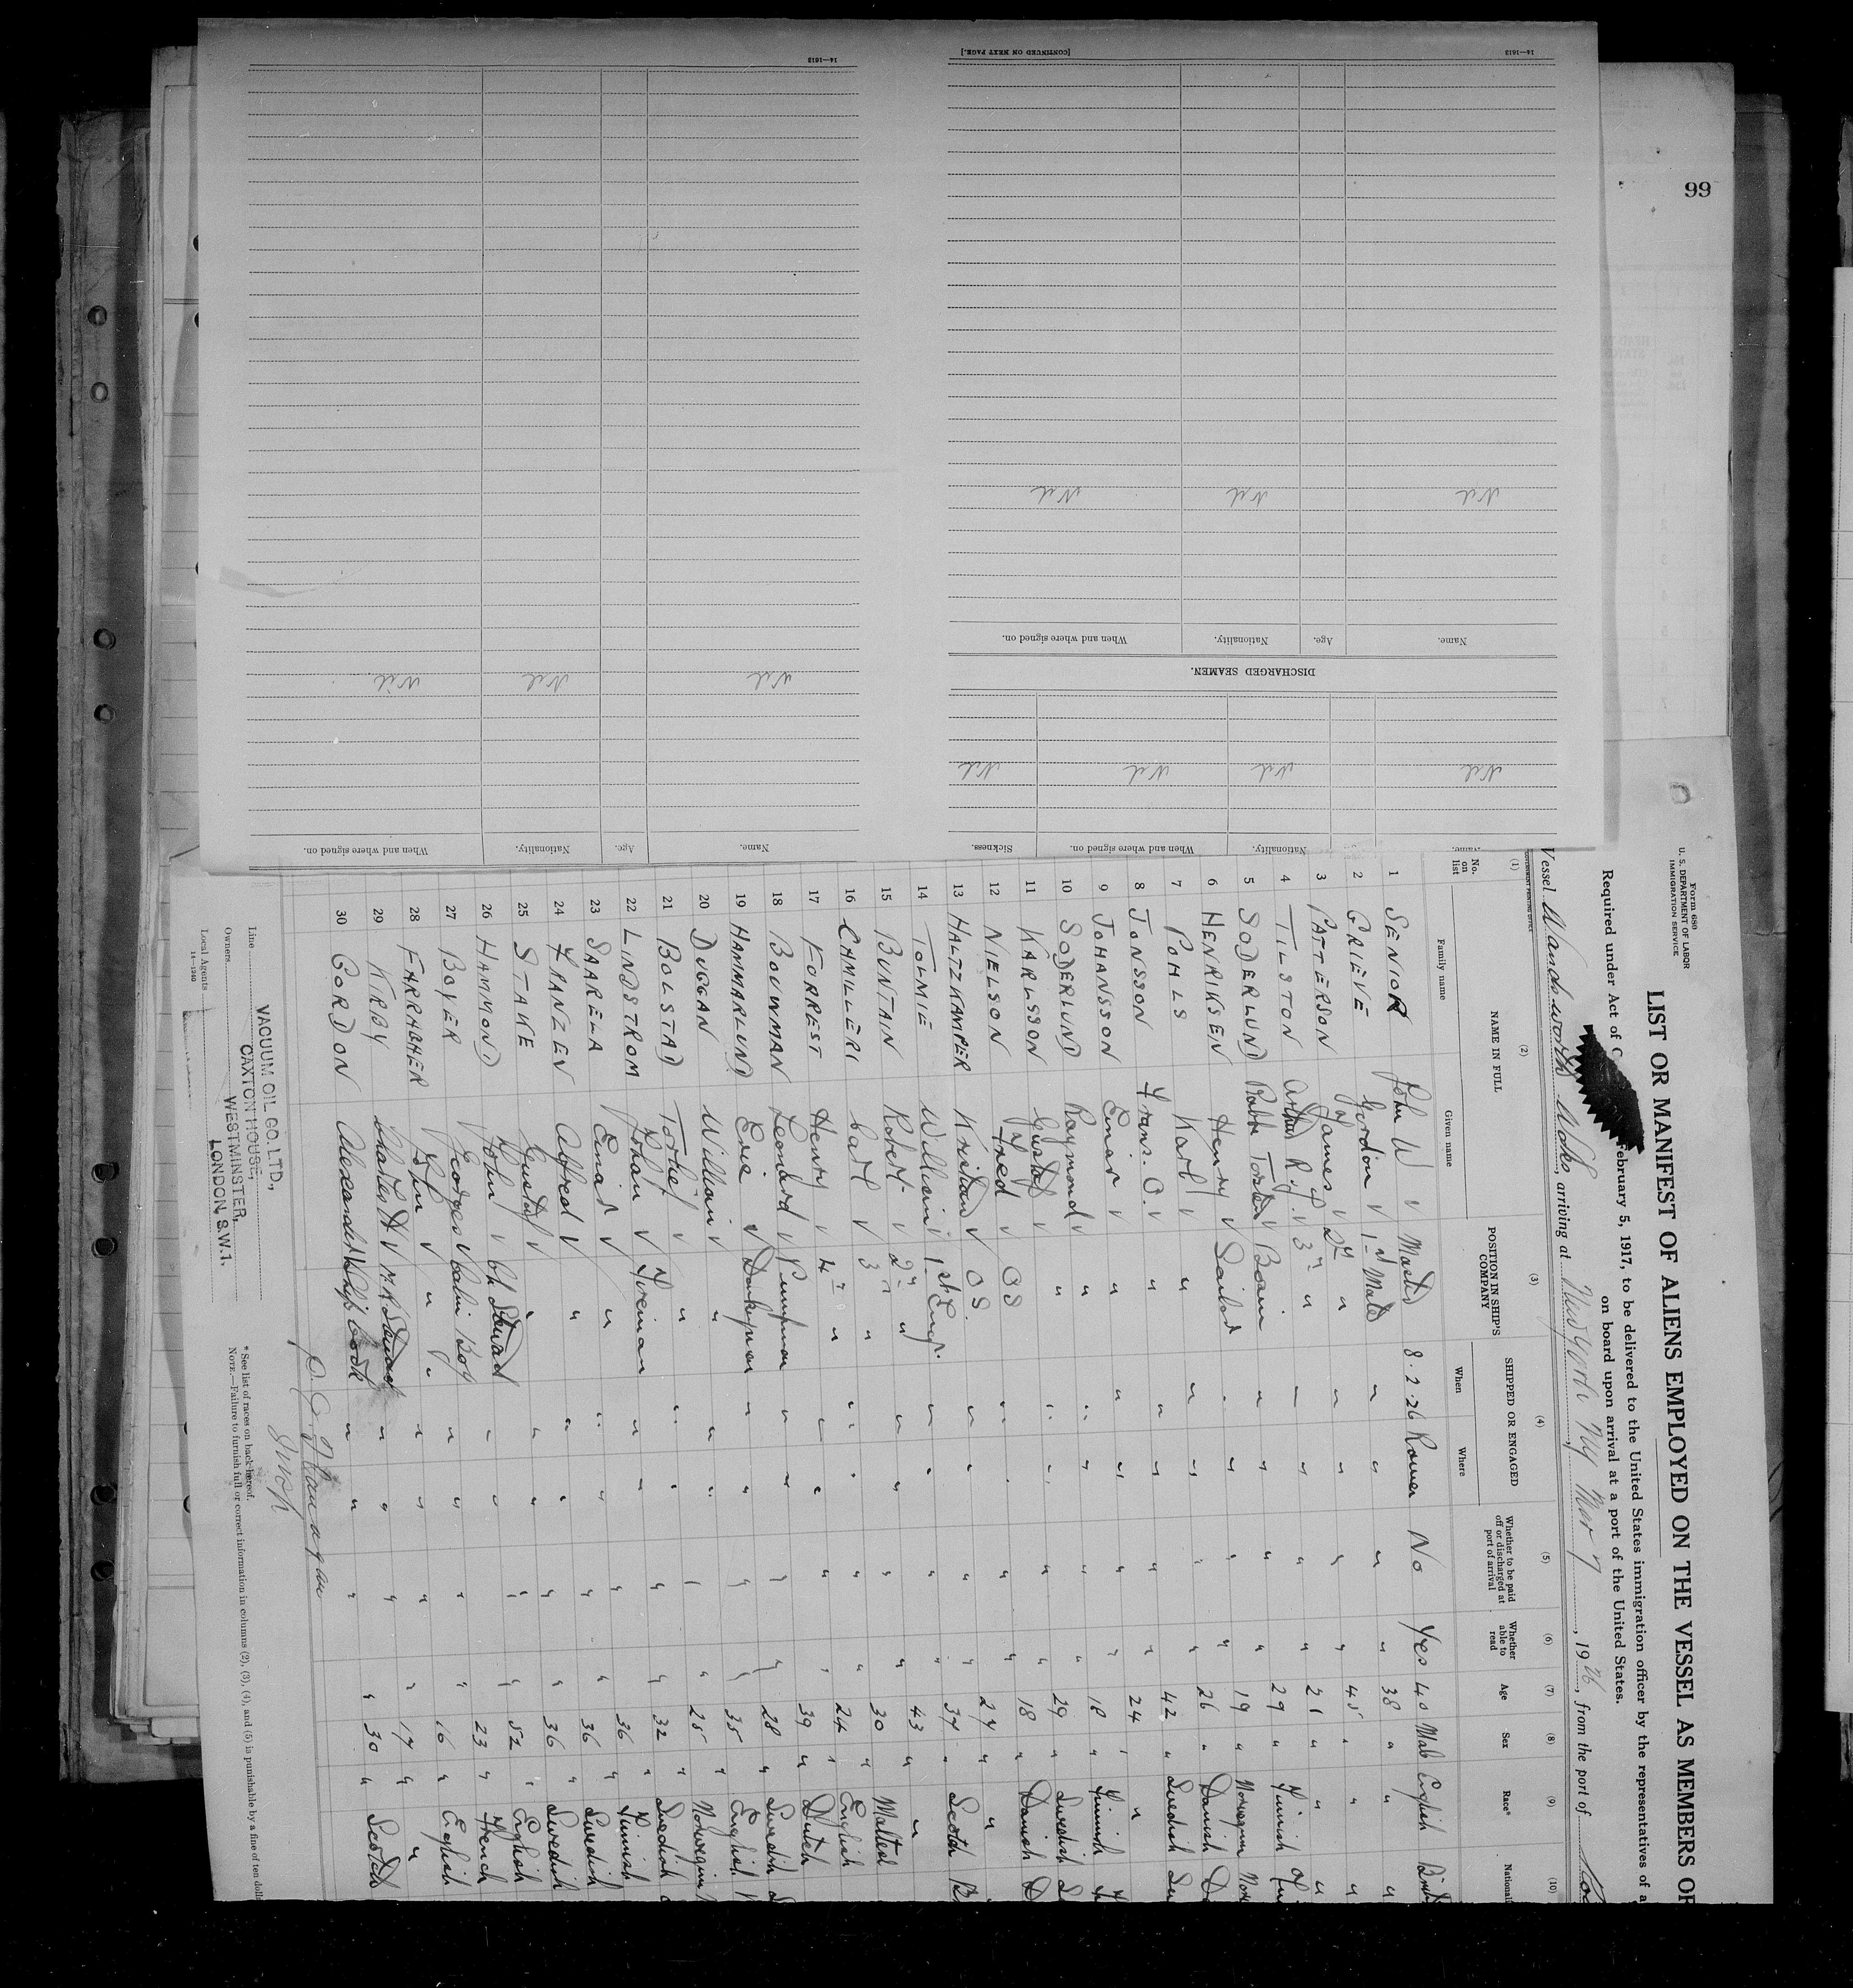 99
Form 680
U. S. DEPARTMENT OF LABOR
IMMIGRATION SERVICE
LIST OR MANIFEST OF ALIENS EMPLOYED ON THE VESSEL AS MEMBERS OF
Required under Act of C February 5, 1917, to be delivered to the United States immigration officer by the representatives of a
on board upon arrival at a port of the United States.
Vessel Wandsworth Works, arriving at New York NY Mar 7, 1926, from the port of
(1) (2) (3) (4) (5) (6) (7) (8) (9) (10)
No. on list NAME IN FULL POSITION IN SHIP'S COMPANY SHIPPED OR ENGAGED Whether to be paid off or discharged at port of arrival Whether able to read Age Sex Race* National
Family name Given name When Where
1 SENIOR John W v Master 8.2.26 Rouen No Yes 40 Male English Brit
2 GRIEVE Gordon v 1st Mate " " " " 38 " " "
3 PATTERSON James v 2nd " " " " " 45 " " "
4 TILSTON Arthur R. v 3rd " " " " " 21 " " "
5 SODERLUND Torsten v Bosun " " " " 29 " Finnish Fin
6 HENRIKSEN Henry v Sailor " " " " 19 " Norwegian Nor
7 POHLS Karl v " " " " " 26 " Danish Da
8 JONSSON Frans. O. v " " " " " 42 " Swedish Sw
9 JOHANSSON Einar v " " " " " 24 " "
10 SODERLUND Raymond v " " " " " 18 " Finnish
11 KARLSSON Gustaf v " " " " " 29 " Swedish S
12 NIELSON Alfred v OS " " " " 18 " Danish D
13 HALTZKAMPER Kristian v OS. " " " " 27 " "
14 TOLMIE William v 1st Engr. " " " " 37 " Scotch Br
15 BUNTAIN Robert v 2nd " " " " " 43 " "
16 CAMILLERI Carl v 3 " " " " " 30 " Maltese
17 FORREST Henry v 4th " " " " " 24 " English
18 BOUWMAN Leonard v Pumpman " " " " 39 " Dutch
19 HAMMARLUND Eric v Donkeyman " " " " 28 " Swedish S
20 DUGGAN William v " " " " " 35 " English
21 BOLSTAD Torleif v " " " " " 25 " Norwegian
22 LINDSTROM Johan v Fireman " " " " 32 " Swedish
23 SAARELA Einar v " " " " " 36 " Finnish
24 FRANZEN Alfred v " " " " " 36 " Swedish
25 STAKE Gustaf v " " " " " 36 " Swedish
26 HAMMOND John v Ch Steward " " " " 52 " English
27 BOYER Georges v Cabin Boy " " " " 23 " French
28 FARRAGHER John v " " " " " 16 " English
29 KIRBY Charles H v M.R. Steward " " " " 17 " "
30 GORDON Alexander Ships Cook " " " " 30 " Scotch
Surgn
Line VACUUM OIL CO. LTD.,
CAXTON HOUSE,
Owners WESTMINSTER,
Local Agents LONDON, S.W.1.
14—1240
* See list of races on back hereof.
NOTE.—Failure to furnish full or correct information in columns (2), (3), (4), and (5) is punishable by a fine of ten dolla
Name. Nationality. When and where signed on. Sickness.
Nil Nil Nil Nil
DISCHARGED SEAMEN.
Name. Age. Nationality. When and where signed on.
Nil Nil Nil
14—1613
[CONTINUED ON NEXT PAGE.]
Name. Age. Nationality. When and where signed on.
Nil Nil Nil
14—1613